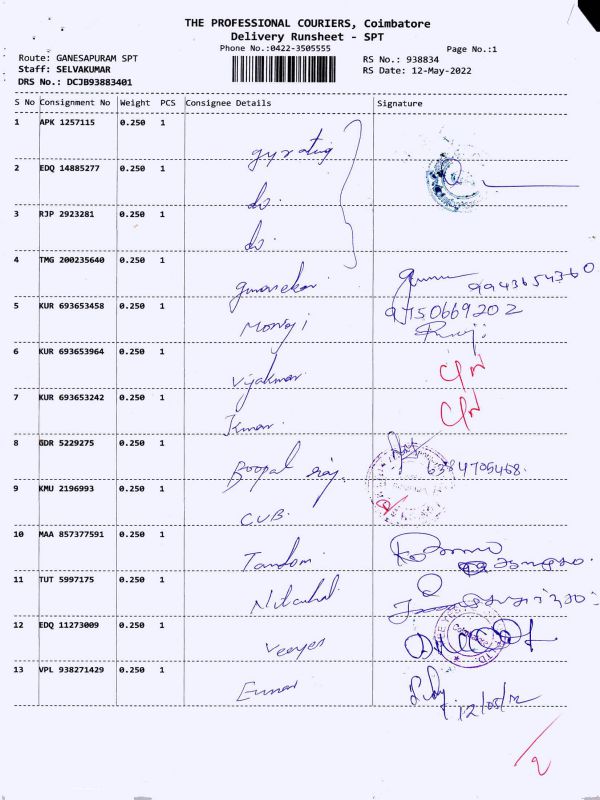 THE PROFESSIONAL COURIERS, Coimbatore
Delivery Runsheet - SPT
Phone No.:0422-3505555 Page No.:1
Route: GANESAPURAM SPT RS No.: 938834
Staff: SELVAKUMAR RS Date: 12-May-2022
DRS No.: DCJB93883401
S No Consignment No Weight PCS Consignee Details Signature
1 APK 1257115 0.250 1
2 EDQ 14885277 0.250 1 do.
3 RJP 2923281 0.250 1 do.
4 TMG 200235640 0.250 1 9943654360
5 KUR 693653458 0.250 1 9750669202
6 KUR 693653964 0.250 1 Vijaykumar C/N
7 KUR 693653242 0.250 1 Kumar. C/N
8 GDR 5229275 0.250 1 Boopal raj. 6384705468.
9 KMU 2196993 0.250 1 CUB.
10 MAA 857377591 0.250 1
11 TUT 5997175 0.250 1
12 EDQ 11273009 0.250 1 Veeyes
13 VPL 938271429 0.250 1